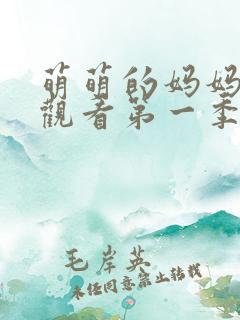 萌萌的妈妈
觀看第一季
毛岸英
未经同意禁止转载